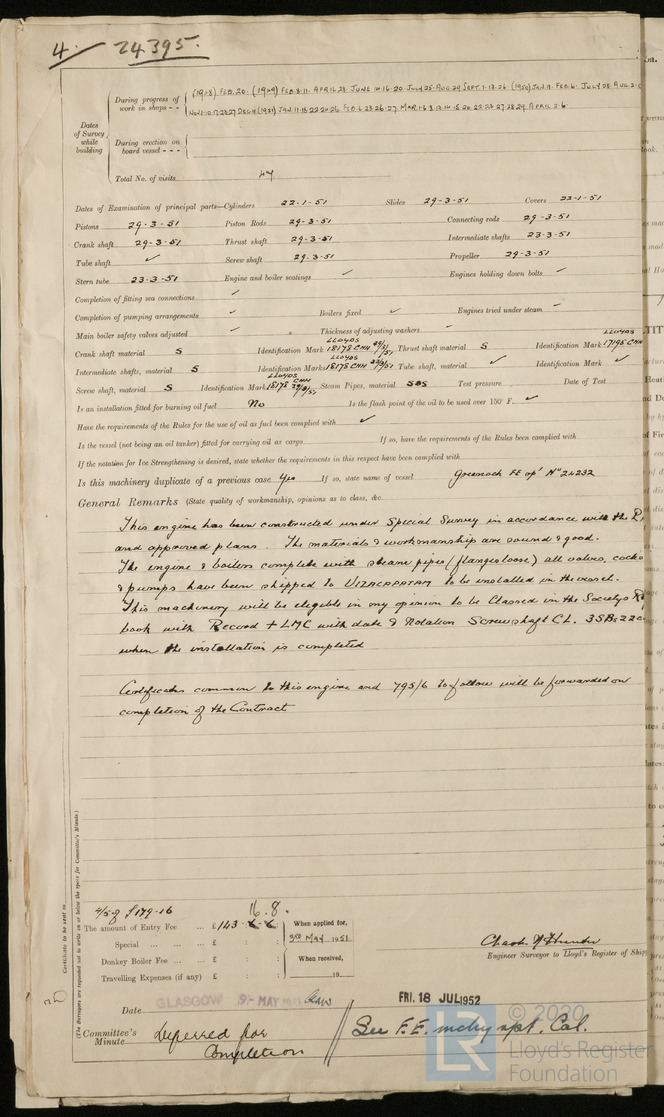 4. 24395.
Dates of Survey while building
During progress of work in shops - -
(1948) FEB. 20. (1949) FEB 8.11. APRIL 28. JUNE 14.16.20. JULY 25. AUG 29 SEPT. 1.13.26 (1950) JAN 11. FEB. 6. JULY 28 AUG
(1951) JAN.11.18.22.24.26 FEB.6.23.26.27. MAR.1.6.8.13.14.15.20.22.23.27.28.29. APRIL 2.6
During erection on board vessel - - -
Total No. of visits 44
Dates of Examination of principal parts—Cylinders 22-1-51 Slides 29-3-51 Covers 23-1-51
Pistons 29-3-51 Piston Rods 29-3-51 Connecting rods 29-3-51
Crank shaft 29-3-51 Thrust shaft 29-3-51 Intermediate shafts 23-3-51
Tube shaft ✓ Screw shaft 29-3-51 Propeller 29-3-51
Stern tube 23-3-51 Engine and boiler seatings ✓ Engines holding down bolts ✓
Completion of fitting sea connections ✓
Completion of pumping arrangements ✓ Boilers fixed ✓ Engines tried under steam ✓
Main boiler safety valves adjusted ✓ Thickness of adjusting washers ✓
Crank shaft material S Identification Mark LLOYDS 18178 CHH Thrust shaft material S Identification Mark LLOYDS 17195 CHH
Intermediate shafts, material S Identification Marks LLOYDS 18178 CHH Tube shaft, material ✓ Identification Mark ✓
Screw shaft, material S Identification Mark LLOYDS 18178 CHH Steam Pipes, material SDS Test pressure Date of Test
Is an installation fitted for burning oil fuel No Is the flash point of the oil to be used over 150° F. ✓
Have the requirements of the Rules for the use of oil as fuel been complied with ✓
Is the vessel (not being an oil tanker) fitted for carrying oil as cargo If so, have the requirements of the Rules been complied with
If the notation for Ice Strengthening is desired, state whether the requirements in this respect have been complied with
Is this machinery duplicate of a previous case Yes If so, state name of vessel Greenock FE rpt No 24232
General Remarks (State quality of workmanship, opinions as to class, &c.
This engine has been constructed under Special Survey in accordance with the
and approved plans. The materials & workmanship are sound & good.
The engine & boilers complete with steam pipes (flanges loose) all valves, cocks
& pumps have been shipped to VIZAGAPATAM to be installed in the vessel.
This machinery will be eligible in my opinion to be Classed in the Society's
book with Record + LMC with date & Notation Screwshaft CL. 3SB
when the installation is completed
Certificates common to this engine and 795/6 to follow will be forwarded on
completion of the Contract
Certificate to be sent to
(The Surveyors are requested not to write on or below the space for Committee's Minute.)
£179-16
16. 8.
The amount of Entry Fee ... £143
When applied for, 3RD MAY 1951
Special ... ... ... £ : :
Donkey Boiler Fee ... ... £ : :
When received,
Travelling Expenses (if any) £ : :
19
Engineer Surveyor to Lloyd's Register of
Date GLASGOW 9 - MAY
FRI. 18 JUL 1952
Committee's Minute Deferred for
Completion
See F.E. mchy rpt. Cal.
© 2020
LR
Lloyd's Register
Foundation